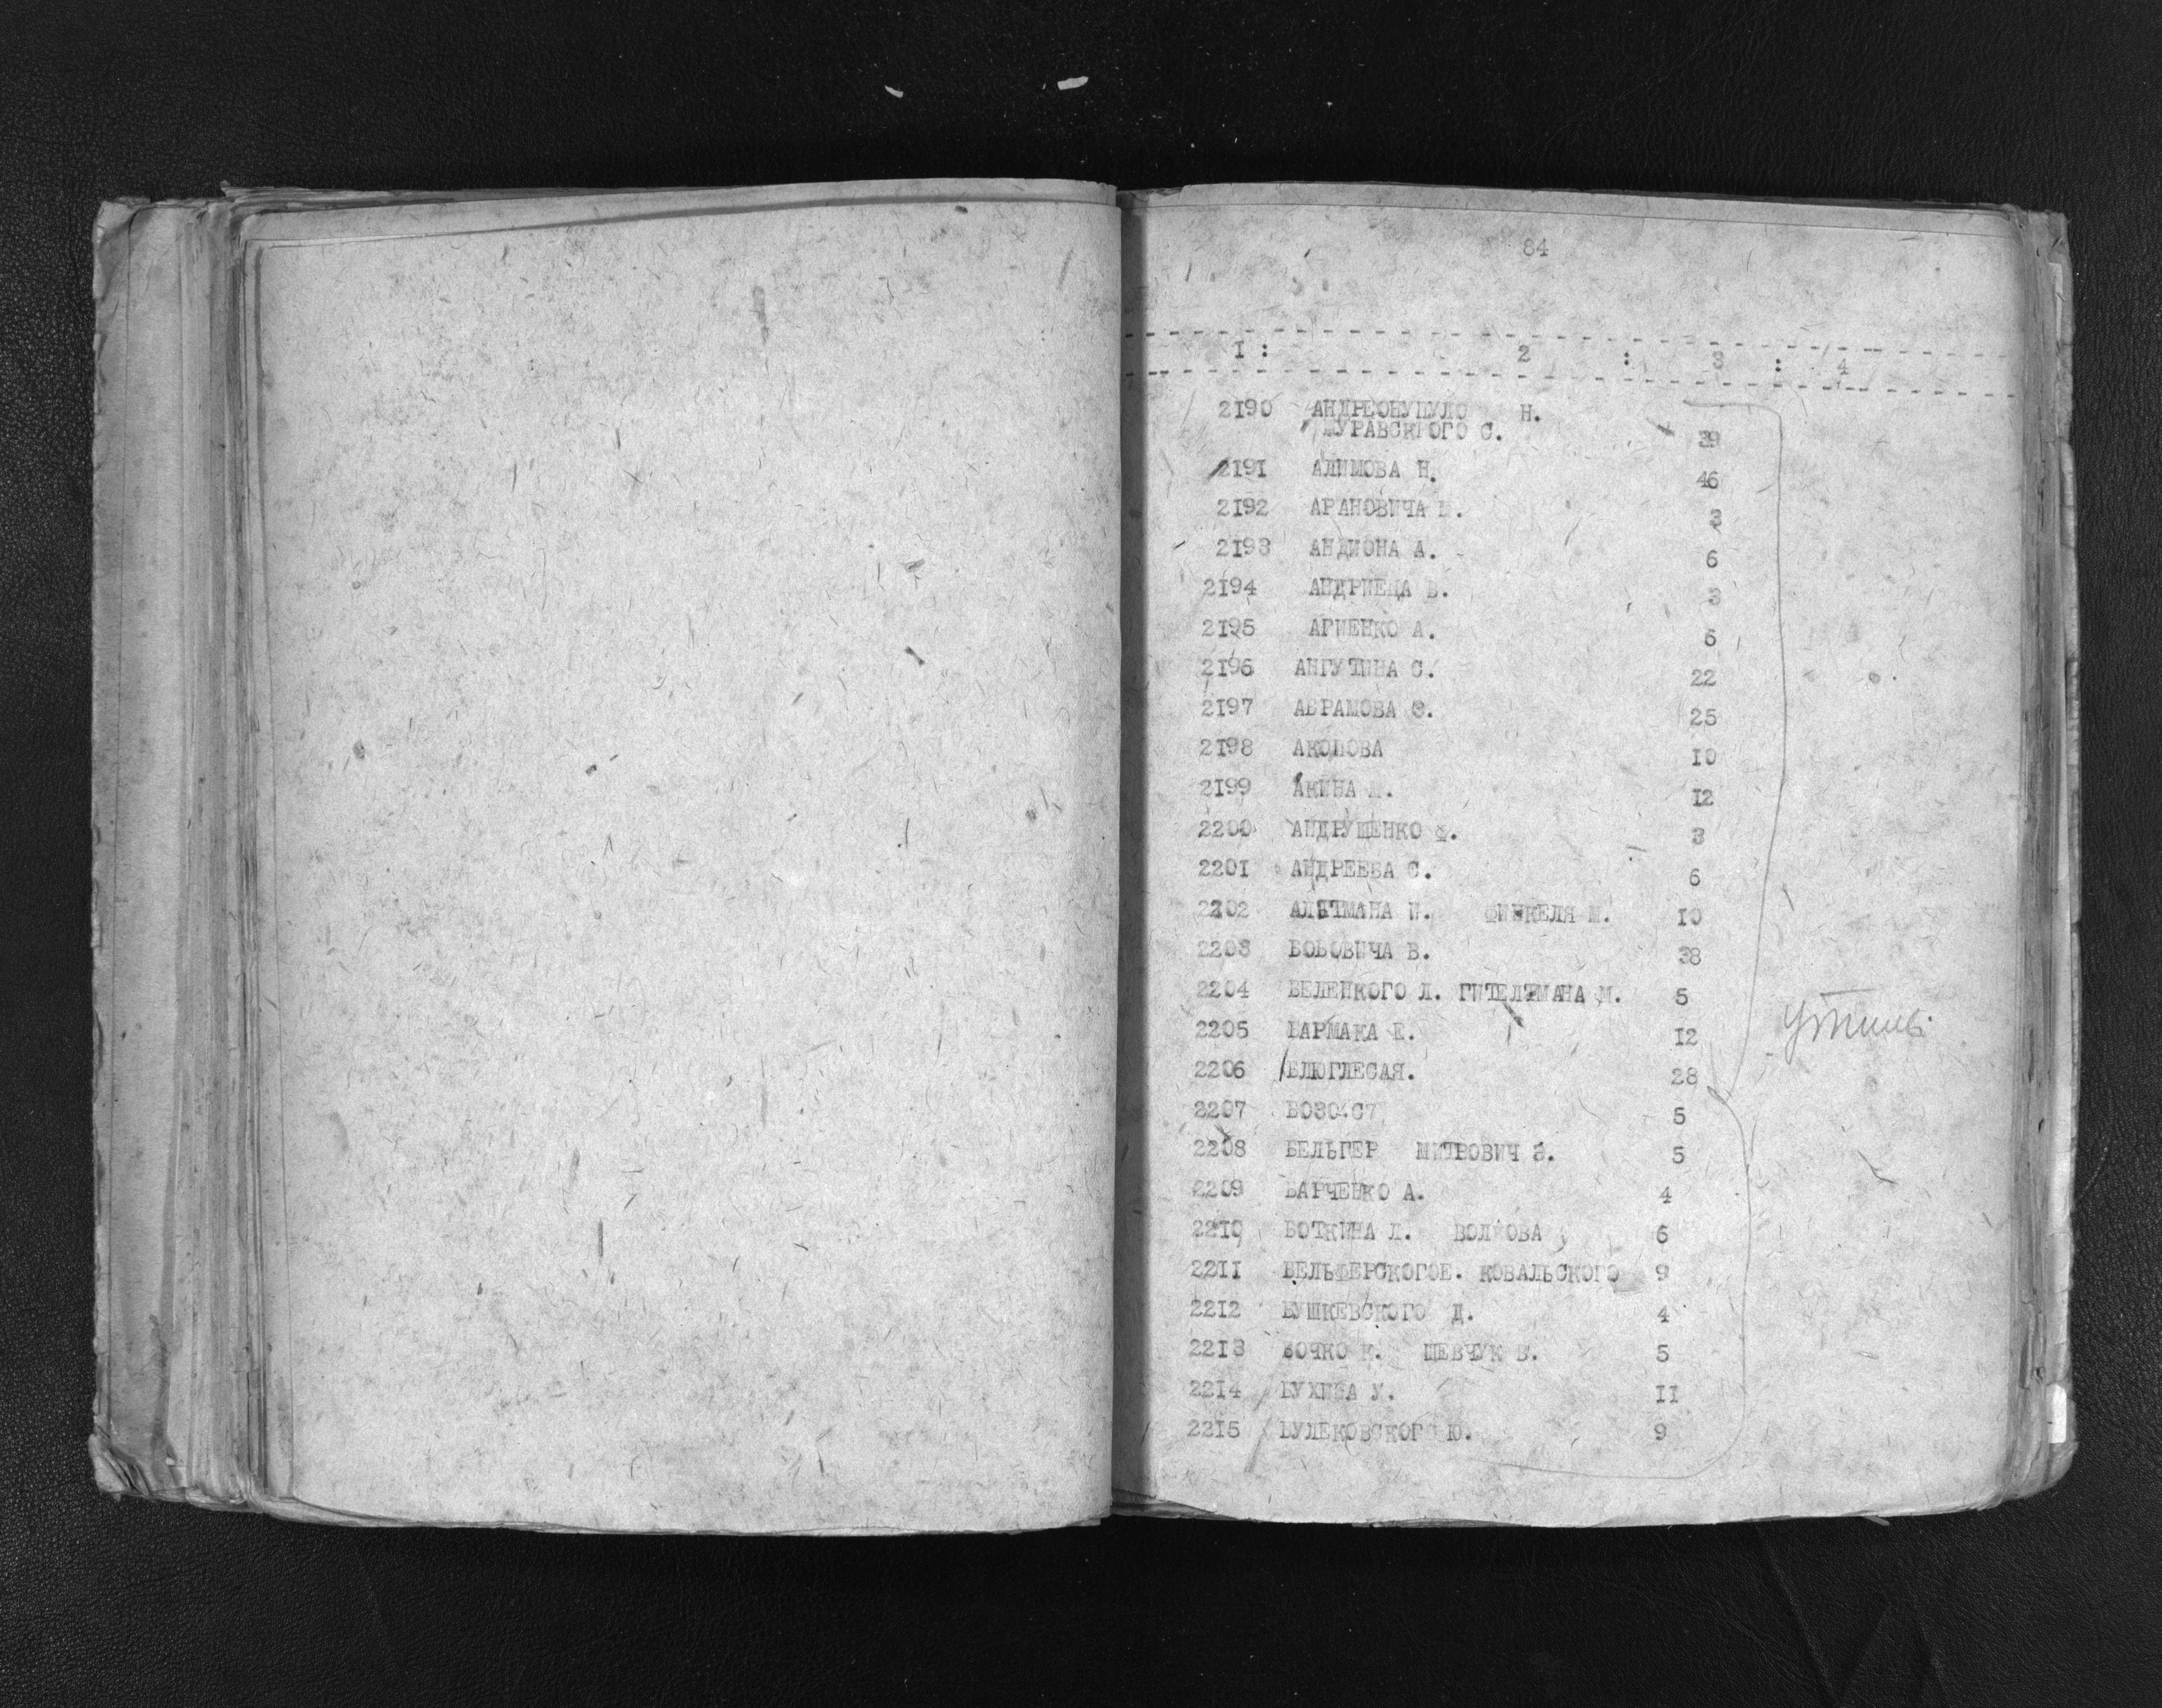 84
I : 2 : 3 : 4
2190 АНДРЕОНУПУЛО Н.
ЖУРАВСКОГО С. 39
2191 АЛИМОВА Н. 46
2192 АРАНОВИЧА 3
2193 АНДИОНА А. 6
2194 АНДРИЕЦА В. 3
2195 АРИЕНКО А. 6
2196 АНГУТИНА С. 22
2197 АБРАМОВА 25
2198 АКОПОВА I0
2199 АКИНА I2
2200 АНДРУЩЕНКО Ф. 3
2201 АНДРЕЕВА С. 6
2202 АЛЬТМАНА И. ФИНКЕЛЯ М. I0
2203 БОБОВИЧА В. 38
2204 БЕЛЕНКОГО Л. ГИТЕЛЬМАНА М. 5
2205 БАРМАКА Е. I2
2206 БЛЮГЛЕСАЯ. 28
2207 5
2208 БЕЛЬГЕР МИТРОВИЧ З. 5
2209 БАРЧЕНКО А. 4
2210 БОТКИНА Л. ВОЛКОВА 6
2211 БЕЛЬФЕРСКОГОЕ. КОВАЛЬСКОГО 9
2212 БУШКЕВСКОГО Д. 4
2213 БОЧКО К. ШЕВЧУК В. 5
2214 БУХИНА У. II
2215 БУЛЕКОВСКОГО Ю. 9